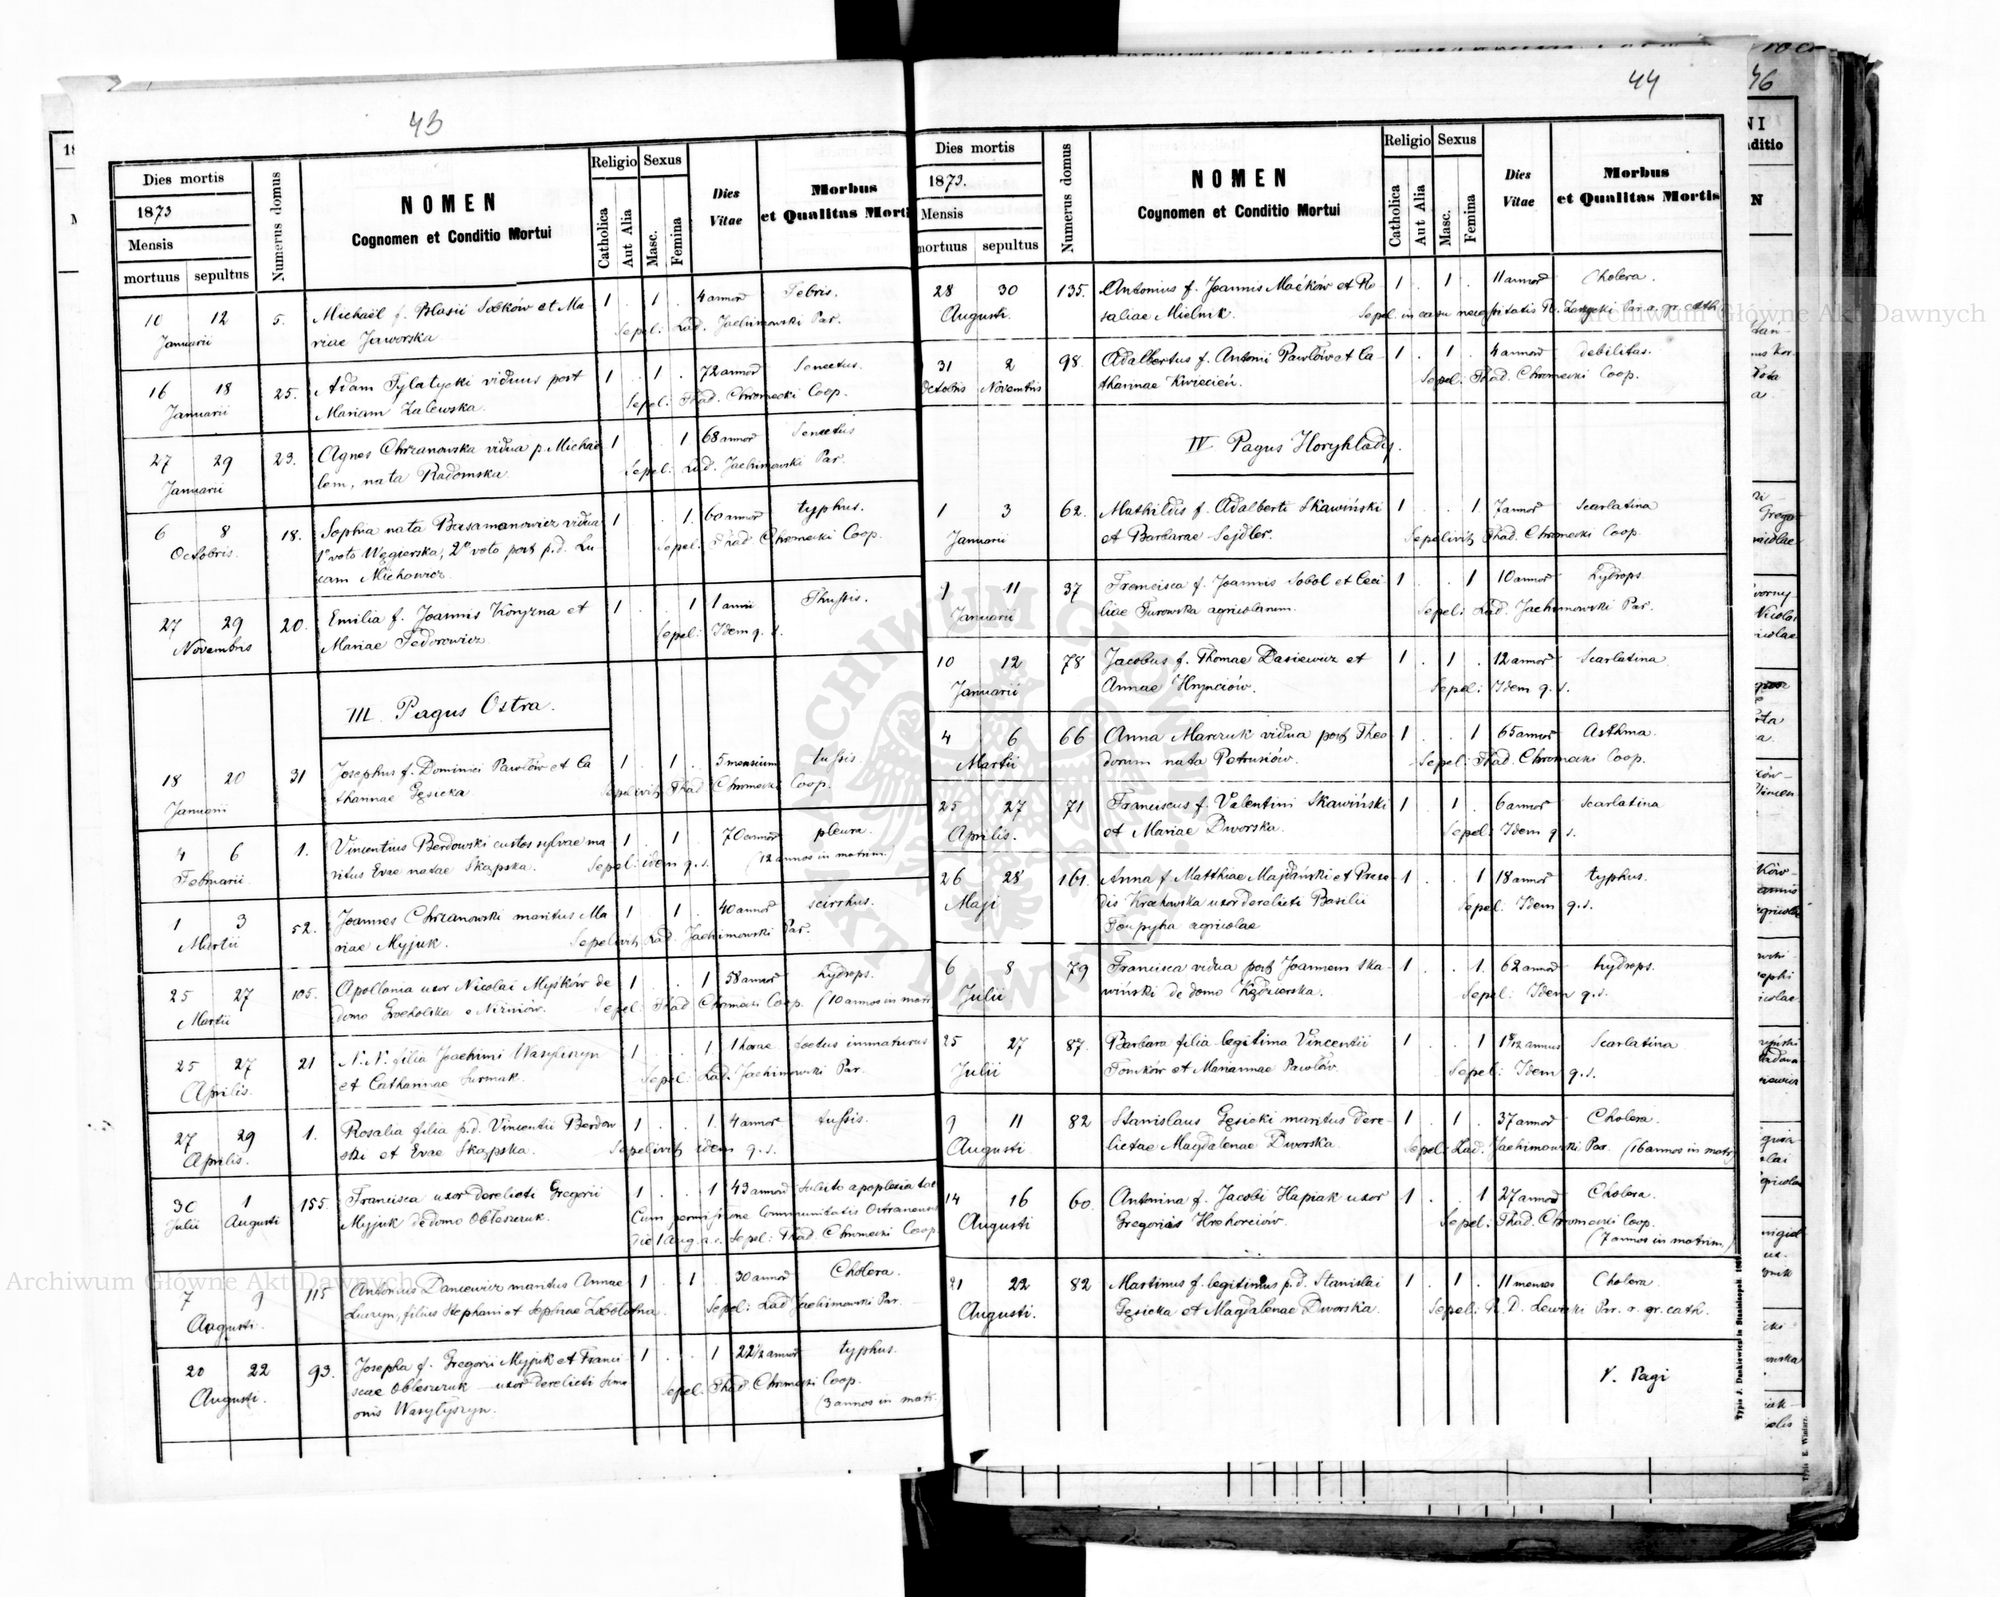 43
Dies mortis
1873
Mensis
mortuus sepultus
Numerus domus
NOMEN
Cognomen et Conditio Mortui
Religio
Catholica
Aut Alia
Sexus
Masc.
Femina
Dies
Vitae
Morbus
et Qualitas Morti
10 12 5. Michaël f. Blasii Sobków et Ma 1 . 1 . 4 annor Febris.
Januarii riae Jaworska Sepel: Lad. Jachimowski Par.
16 18 25. Adam Tylatycki viduus post 1 . 1 . 72 annor Senectus.
Januarii Mariam Zalewska. Sepel: Thad. Chromecki Coop.
27 29 23. Agnes Chrzanowska vidua p. Michae 1 . . 1 68 annor Senectus
Januarii lem, nata Radomska. Sepel: Lad. Jachimowski Par.
6 8 18. Sophia nata Basamanowicz vidua 1 . . 1. 60 annor typhus.
Octobris. 1º voto Węgierska, 2º voto post p.d. Lu- Sepel: Thad Chromecki Coop.
cam Michowicz.
27 29 20. Emilia f. Joannis Koryzna et 1 . . 1 1 anni Thussis.
Novembris Mariae Fedorowicz Sepel: Idem q. s.
III. Pagus Ostra.
18 20 31 Josephus f. Dominici Pawłów et Ca 1 . 1 . 5 mensium tussis.
Januarii tharinae Gęsicka. Sepelivit Thad Chromecki Coop.
4 6 1. Vincentius Berdowski custos sylvae ma 1 1 70 annor pleura.
Februarii ritus Evae natae Skąpska. Sepel: idem q. s. (12 annos in matrim.)
1 3 52. Joannes Chrzanowski maritus Ma 1 . 1 . 40 annor scirrhus.
Martii riae Myjuk. Sepelivit Lad. Jachimowski Par.
25 27 105. Apollonia uxor Nicolai Myśków de 1 . . 1 58 annor hydrops.
Martii domo Grocholska e Niżniów. Sepel: Thad Chromecki Coop. (10 annos in matr
25 27 21 N. N. filia Joachimi Wasyliszyn 1 . . 1. 1 horae foetus immaturus
Aprilis. et Catharinae Surmak. Sepel: Lad. Jachimowski Par.
27 29 1. Rosalia filia p.d. Vincentii Berdow 1 . . 1. 4 annor tussis.
Aprilis. ski et Evae Skąpska. Sepelivit idem q. s.
30 1 155. Francisca uxor derelicti Gregorii 1 . . 1 43 annor subito apoplexia tac
Julii Augusti Myjuk de domo Obleszczuk. Cum permissione Communitatis Ostranensis
die 1 Aug. a.c. Sepel: Thad Chromecki Coop
7 9 115 Antonius Dancewicz maritus Annae 1 . 1 . 30 annor Cholera.
Augusti. filius Stephani et Sophiae Zabolotna. Sepel: Lad Jachimowski Par.
20 22 93. Josepha f. Gregorii Myjuk et Franci 1 . . 1 22 1/2 annor typhus.
Augusti. scae Obleszczuk uxor derelicti Sime Sepel: Thad Chromecki Coop.
onis Wasylyszyn. (3 annos in matr.
44
Dies mortis
1873.
Mensis
mortuus sepultus
Numerus domus
NOMEN
Coynomen et Conditio Mortui
Religio
Catholica
Aut Alia
Sexus
Masc.
Femina
Dies
Vitae
Morbus
et Qualitas Mortis
28 30 135. Antonius f. Joannis Maćków et Ro 1 . 1 . 11 annor Cholera.
Augusti. saliae Mielnik. Sepel in casu necessitatis Par. r. gr. cath
31 2 98. Adalbertus f. Antonii Pawłów et Ca- 1 . 1 . 4 annor debilitas.
Octobris Novembris tharinae Kwiecień. Sepel: Thad. Chromecki Coop.
IV. Pagus Horyhlady.
1 3 62. Mathildis f. Adalberti Skawiński 1 . . 1 7 annor Scarlatina
Januarii et Barbarae Sejdler. Sepelivit Thad. Chromecki Coop.
9 11 37 Francisca f. Joannis Sobol et Ceci 1 . . 1 10 annor hydrops.
Januarii liae Turowska agricolarum. Sepel: Lad. Jachimowski Par.
10 12 78 Jacobus f. Thomae Dasiewicz et 1 . 1 . 12 annor Scarlatina
Januarii Annae Hrynciów. Sepel: Idem q. s.
4 6 66 Anna Marczuk vidua post Theo 1 . . 1 65 annor Asthma.
Martii dorum nata Petrusiów. Sepel: Thad. Chromecki Coop.
25 27 71 Franciscus f. Valentini Skawiński 1 . 1 . 6 annor Scarlatina
Aprilis. et Mariae Dworska. Sepel: Idem q. s.
26 28 161. Anna f. Matthiae Majdański et Praxe 1 . . 1 18 annor typhus.
Maji dis Krechowska uxor derelicti Basilii Sepel: Idem q. s.
agricolae
6 8 79 Francisca vidua post Joannem Ska- 1 . . 1. 62 annor hydrops.
Julii wiński de domo Kędzierska. Sepel: Idem q. s.
25 27 87. Barbara filia legitima Vincentii 1 . . 1 1 8/12 annus Scarlatina
Julii Tomków et Mariannae Pawłów. Sepel: Idem q. s.
9 11 82 Stanislaus Gęsicki maritus dere- 1 . 1 . 37 annor Cholera.
Augusti lictae Magdalenae Dworska. Sepel: Lad. Jachimowski Par. (16 annos in matr)
14 16 60. Antonina f. Jacobi Hapiak uxor 1 . . 1 27 annor Cholera.
Augusti Gregorius Hrehorciów. Sepel: Thad. Chromecki Coop.
(7 annos in matrim)
21 22 82 Martinus f. legitimus p.d. Stanislai 1 . 1 . 11 menses Cholera.
Augusti. Gęsicka et Magdalenae Dworska. Sepel: R. D. Lewicki Par. r. gr. cath.
V. Pagi
Typis J. Dankiewicz in Stanislaopoli
46
Archiwum Główne Akt Dawnych
Archiwum Główne Akt Dawnych
ARCHIWUM GŁÓWNE AKT DAWNYCH